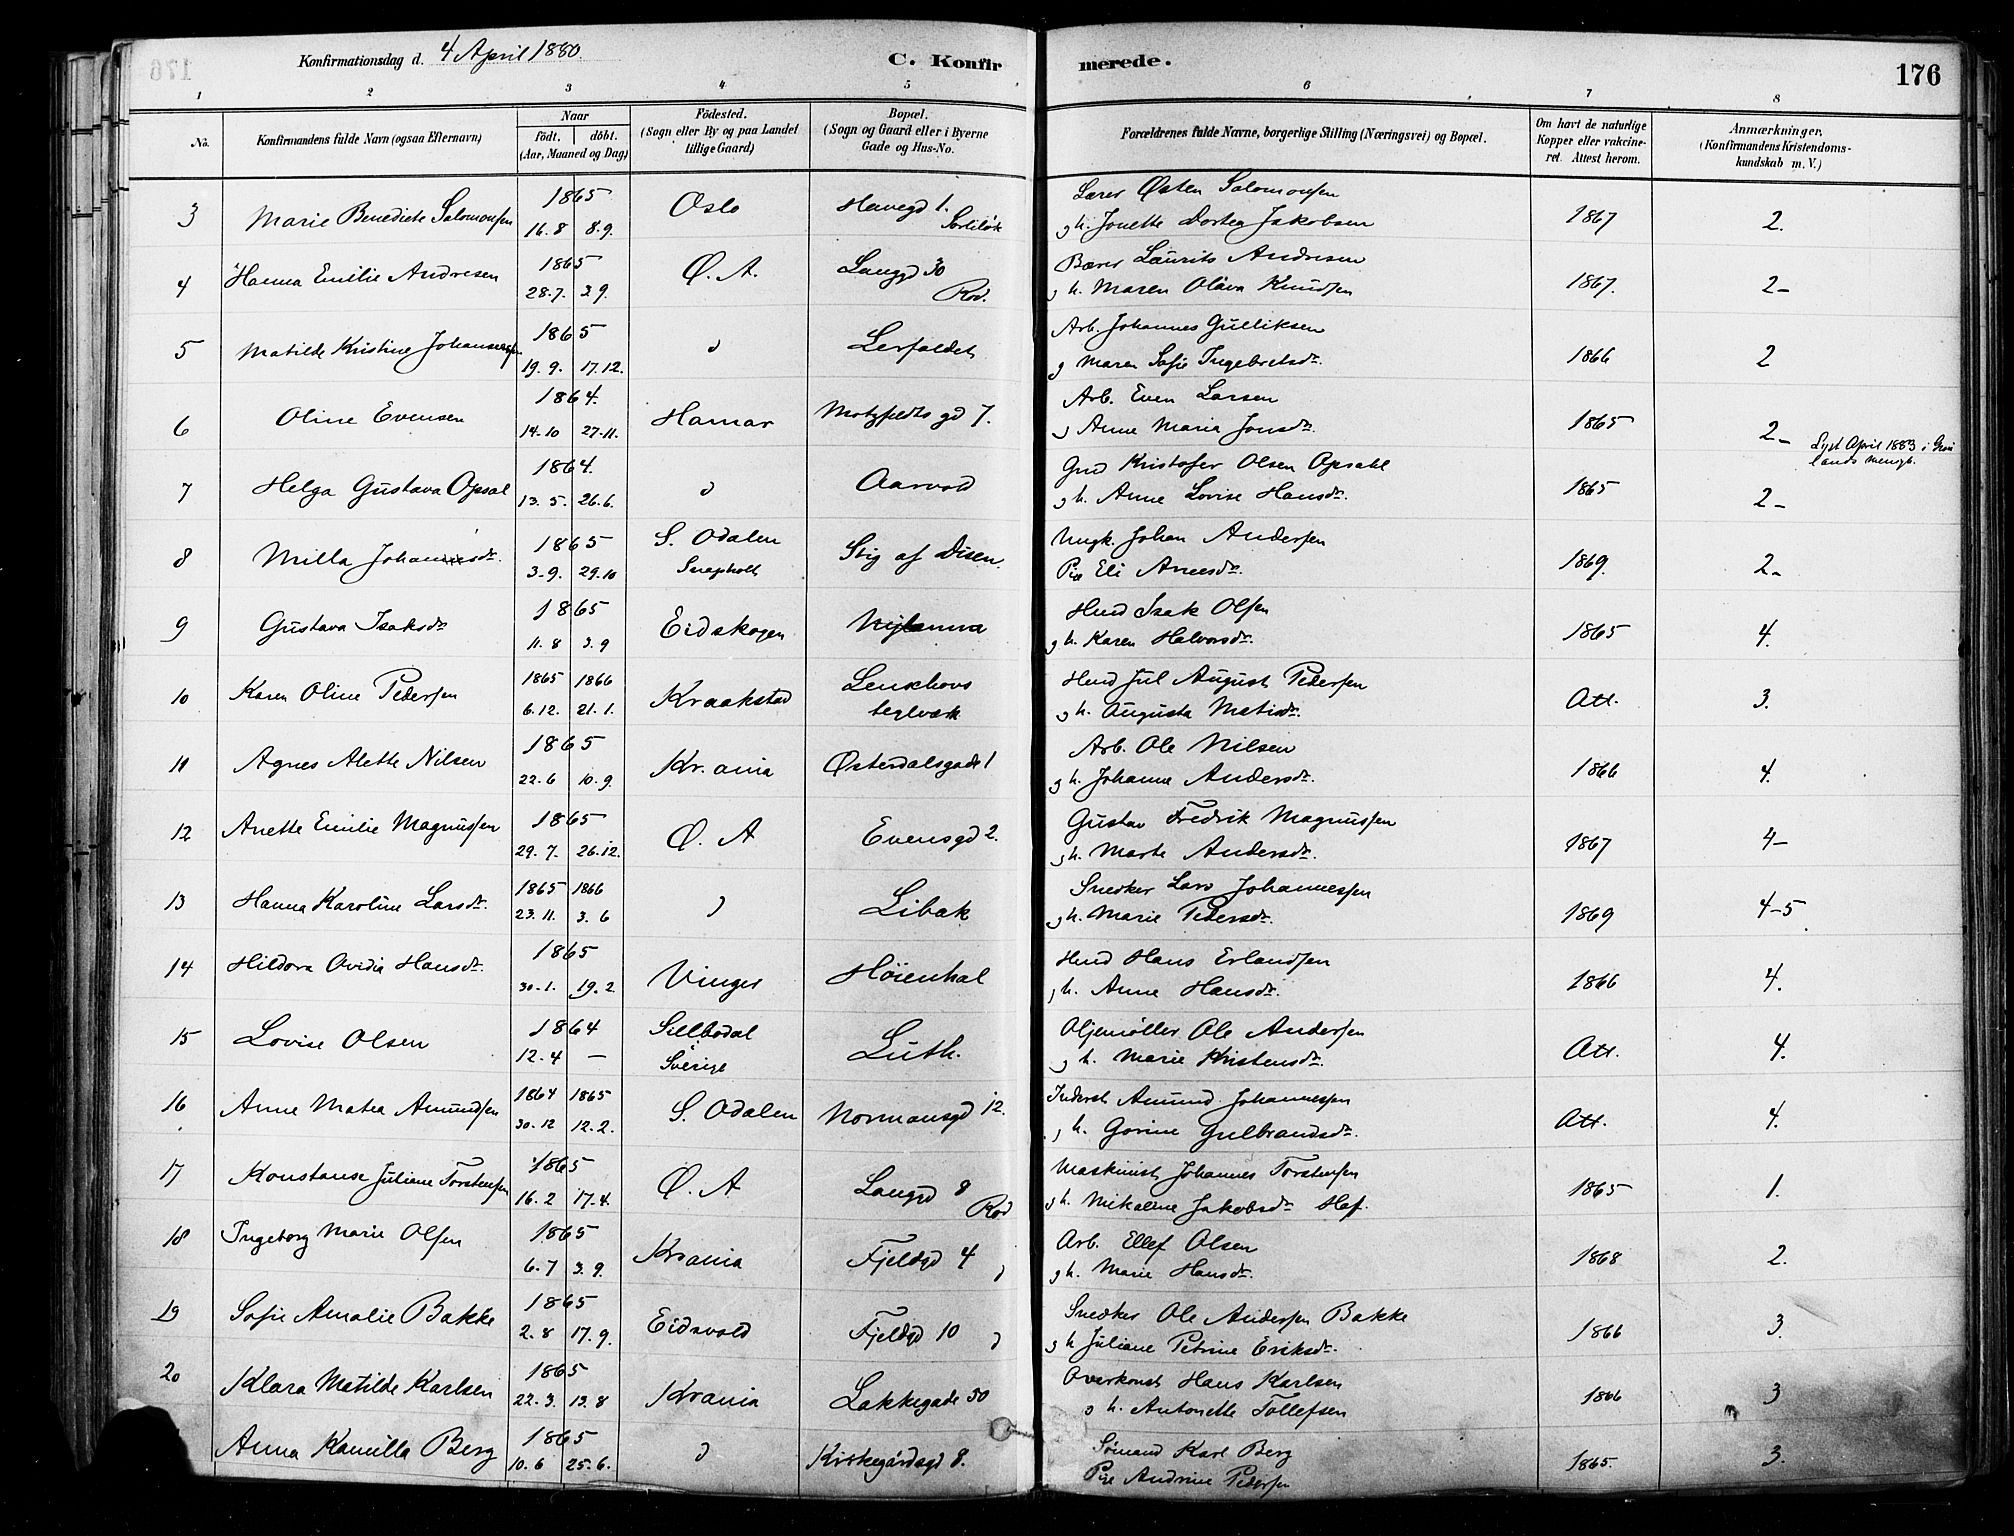 Konfirmationsdag d. 4 April 1880.
C. Konfirmerede.
176
1 2 3 4 5 6 7 8
No.
Konfirmandens fulde Navn (ogsaa Efternavn)
Naar
födt. döbt.
(Aar, Maaned og Dag)
Födested.
(Sogn eller By og paa Landet
tillige Gaard)
Bopæl.
(Sogn og Gaard eller i Byerne
Gade og Hus-No.
Forældrenes fulde Navne, borgerlige Stilling (Næringsvei) og Bopæl.
Om havt de naturlige
Kopper eller vakcine-
ret. Attest herom.
Anmærkninger.
(Konfirmandens Kristendoms-
kundskab m. V.)
3 Marie Benedicte Salomonsen 1865 16.8 8.9. Oslo Havegd 1. Lærer Østen Salomonsen
g. h. Jonette Dortea Jakobsen 1867 2.
4 Hanna Emilie Andresen 1865 28.7. 3.9. Ø. A. Langgd 30 Rod. Bærer Laurits Andresen
g h. Maren Olava Knudsen 1867. 2-
5 Matilde Kristine Johannessen 1865 19.9. 17.12. d Lerfaldet Arb. Johannes Gulliksen
g Maren Sofie Ingebretsdr. 1866 2
6 Oline Evensen 1864. 14.10 27.11. Hamar Motzfeldts gd 7. Arb. Even Larsen
g Anne Maria Jonsdr. 1865 2-
Lyst April 1883 i Grøn
lands menigh.
7 Helga Gustava Opsal 1864. 13.5. 26.6. d Aarvold Grd Kristofer Olsen Opsahl
g. h. Anne Lovise Hansdr. 1865 2-
8 Milla Johansdr. 1865 3.9. 29.10 S. Odalen Stig af Disen. Ungk. Johan Andersen
Pige Eli Arnesdr. 1869. 2-
9 Gustava Isaksdr 1865 11.8 3.9 Eidskogen Hmd Isak Olsen
g h. Karen Halvorsdr. 1865 4.
10 Karen Oline Pedersen 1865 1866 6.12. 21.1. Kraakstad Lenschovs
teglværk Hmd Jul August Pedersen
g h. Augusta Matisdr. Att. 3.
11 Agnes Alette Nilsen 1865 22.6 10.9. Kr.ania Østerdalsgade 1 Arb. Ole Nilsen
g h. Johanne Andersdr. 1866 4.
12 Anette Emilie Magnussen 1865 29.7. 26.12. Ø. A Evensgd 2. Gustav Fredrik Magnussen
g h. Marte Andersdr. 1867 4-
13 Hanna Karoline Larsdr. 1865 1866 23.11. 3.6 d Libak Snedker Lars Johannessen
g h. Marie Pedersdr. 1869 4-5
14 Hildora Ovidia Hansdr. 1865 30.1. 19.2. Vinger Høienhal Hmd Hans Erlandsen
g h. Anne Hansdr. 1866 4.
15 Lovise Olsen 1864 12.4 — Sillbodal
Sverige Luth. Oljemøller Ole Andersen
g h. Marie Kristensdr. Att. 4.
16 Anne Matea Amundsen 1864 1865 30.12 12.2. S. Odalen Normansgd 12. Inderst Amund Johannessen
g h. Gorine Gulbrandsdr. Att. 4.
17 Konstanse Juliane Torstensen 1865 16.2 17.4. Ø. A Langgd 8 Rod Maskinist Johannes Torstensen
g h. Mikaline Jakobsdr Hof. 1865 1.
18 Ingeborg Marie Olsen 1865 6.7 3.9. Krania Fjeldgd 4 d Arb. Ellef Olsen
g h. Marie Hansdr. 1868 2.
19 Sofie Amalie Bakke 1865 2.8 17.9. Eidsvold Fjeldgd 10 d Snedker Ole Andersen Bakke
g h Juliane Petrine Eriksdr. 1866 3.
20 Klara Matilde Karlsen 1865 22.3. 13.8 Krania Lakkegade 50 Overkonst Hans Karlsen
g h. Antonette Tollefsen 1866 3
Anna Kamilla Berg 1865 10.6 25.6. d Kirkegårdsgd 8. Sømand Karl Berg
Pige Andrine Pedersen 1865. 3.